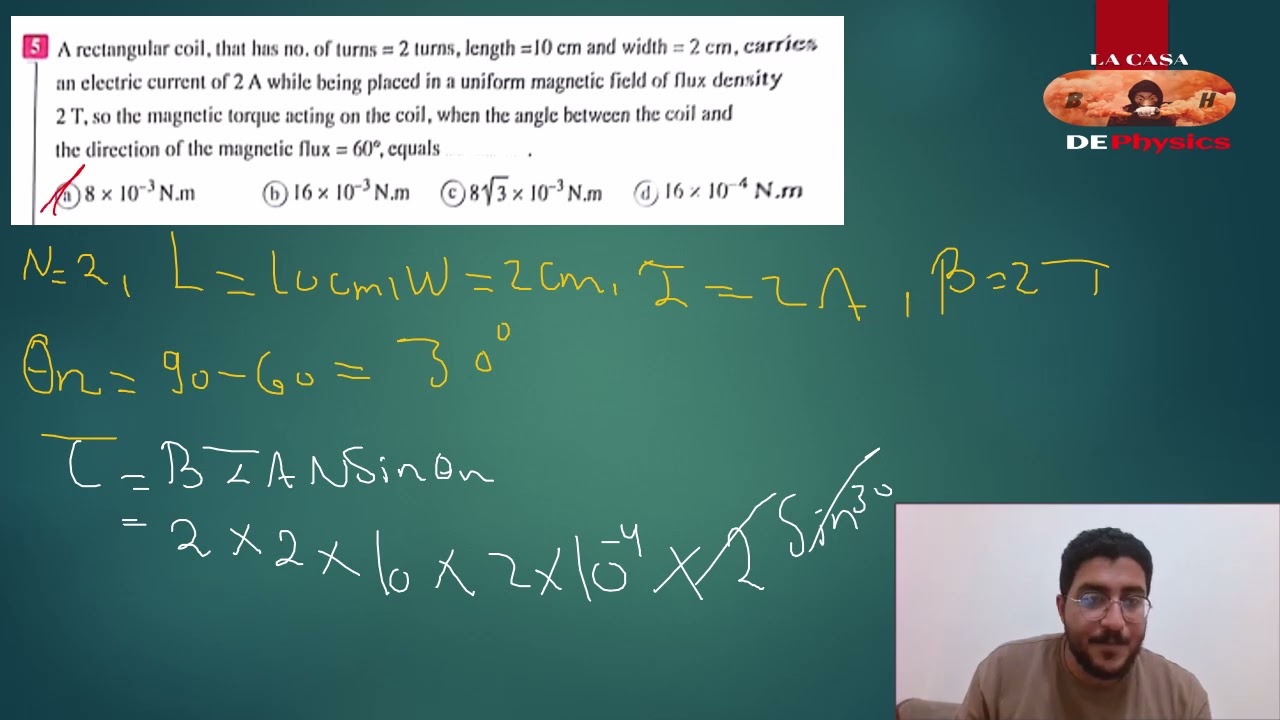 5 A rectangular coil, that has no. of turns = 2 turns, length =10 cm and width = 2 cm, carries
an electric current of 2 A while being placed in a uniform magnetic field of flux density
2 T, so the magnetic torque acting on the coil, when the angle between the coil and
the direction of the magnetic flux = 60°, equals ............ .
a 8 × 10⁻³ N.m b 16 × 10⁻³ N.m c 8√3 × 10⁻³ N.m d 16 × 10⁻⁴ N.m
LA CASA
B H
DE Physics
N=2, L=10cm, W=2cm, I=2A, B=2T
θn=90-60=30°
τ=BIANSinθn
=2×2×10×2×10⁻⁴×2 Sin30